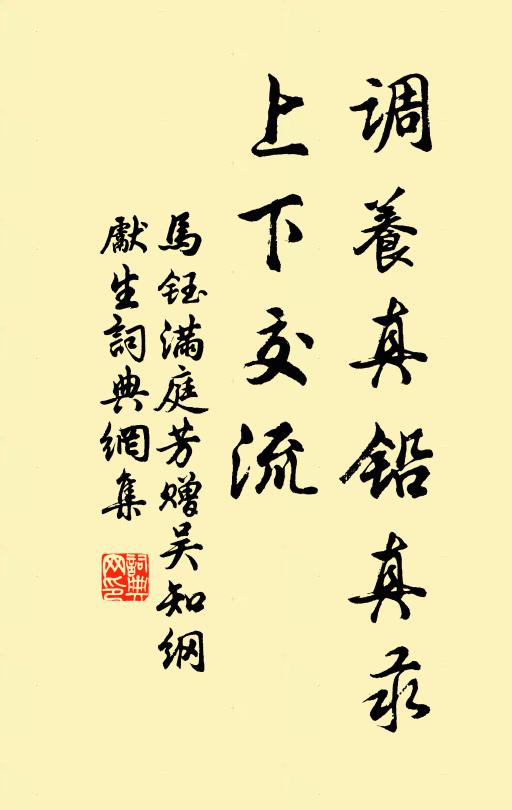 調養真鉛真汞
上下交流
馬鈺滿庭芳贈吴知綱
獻生詞典網集
詞典
网印